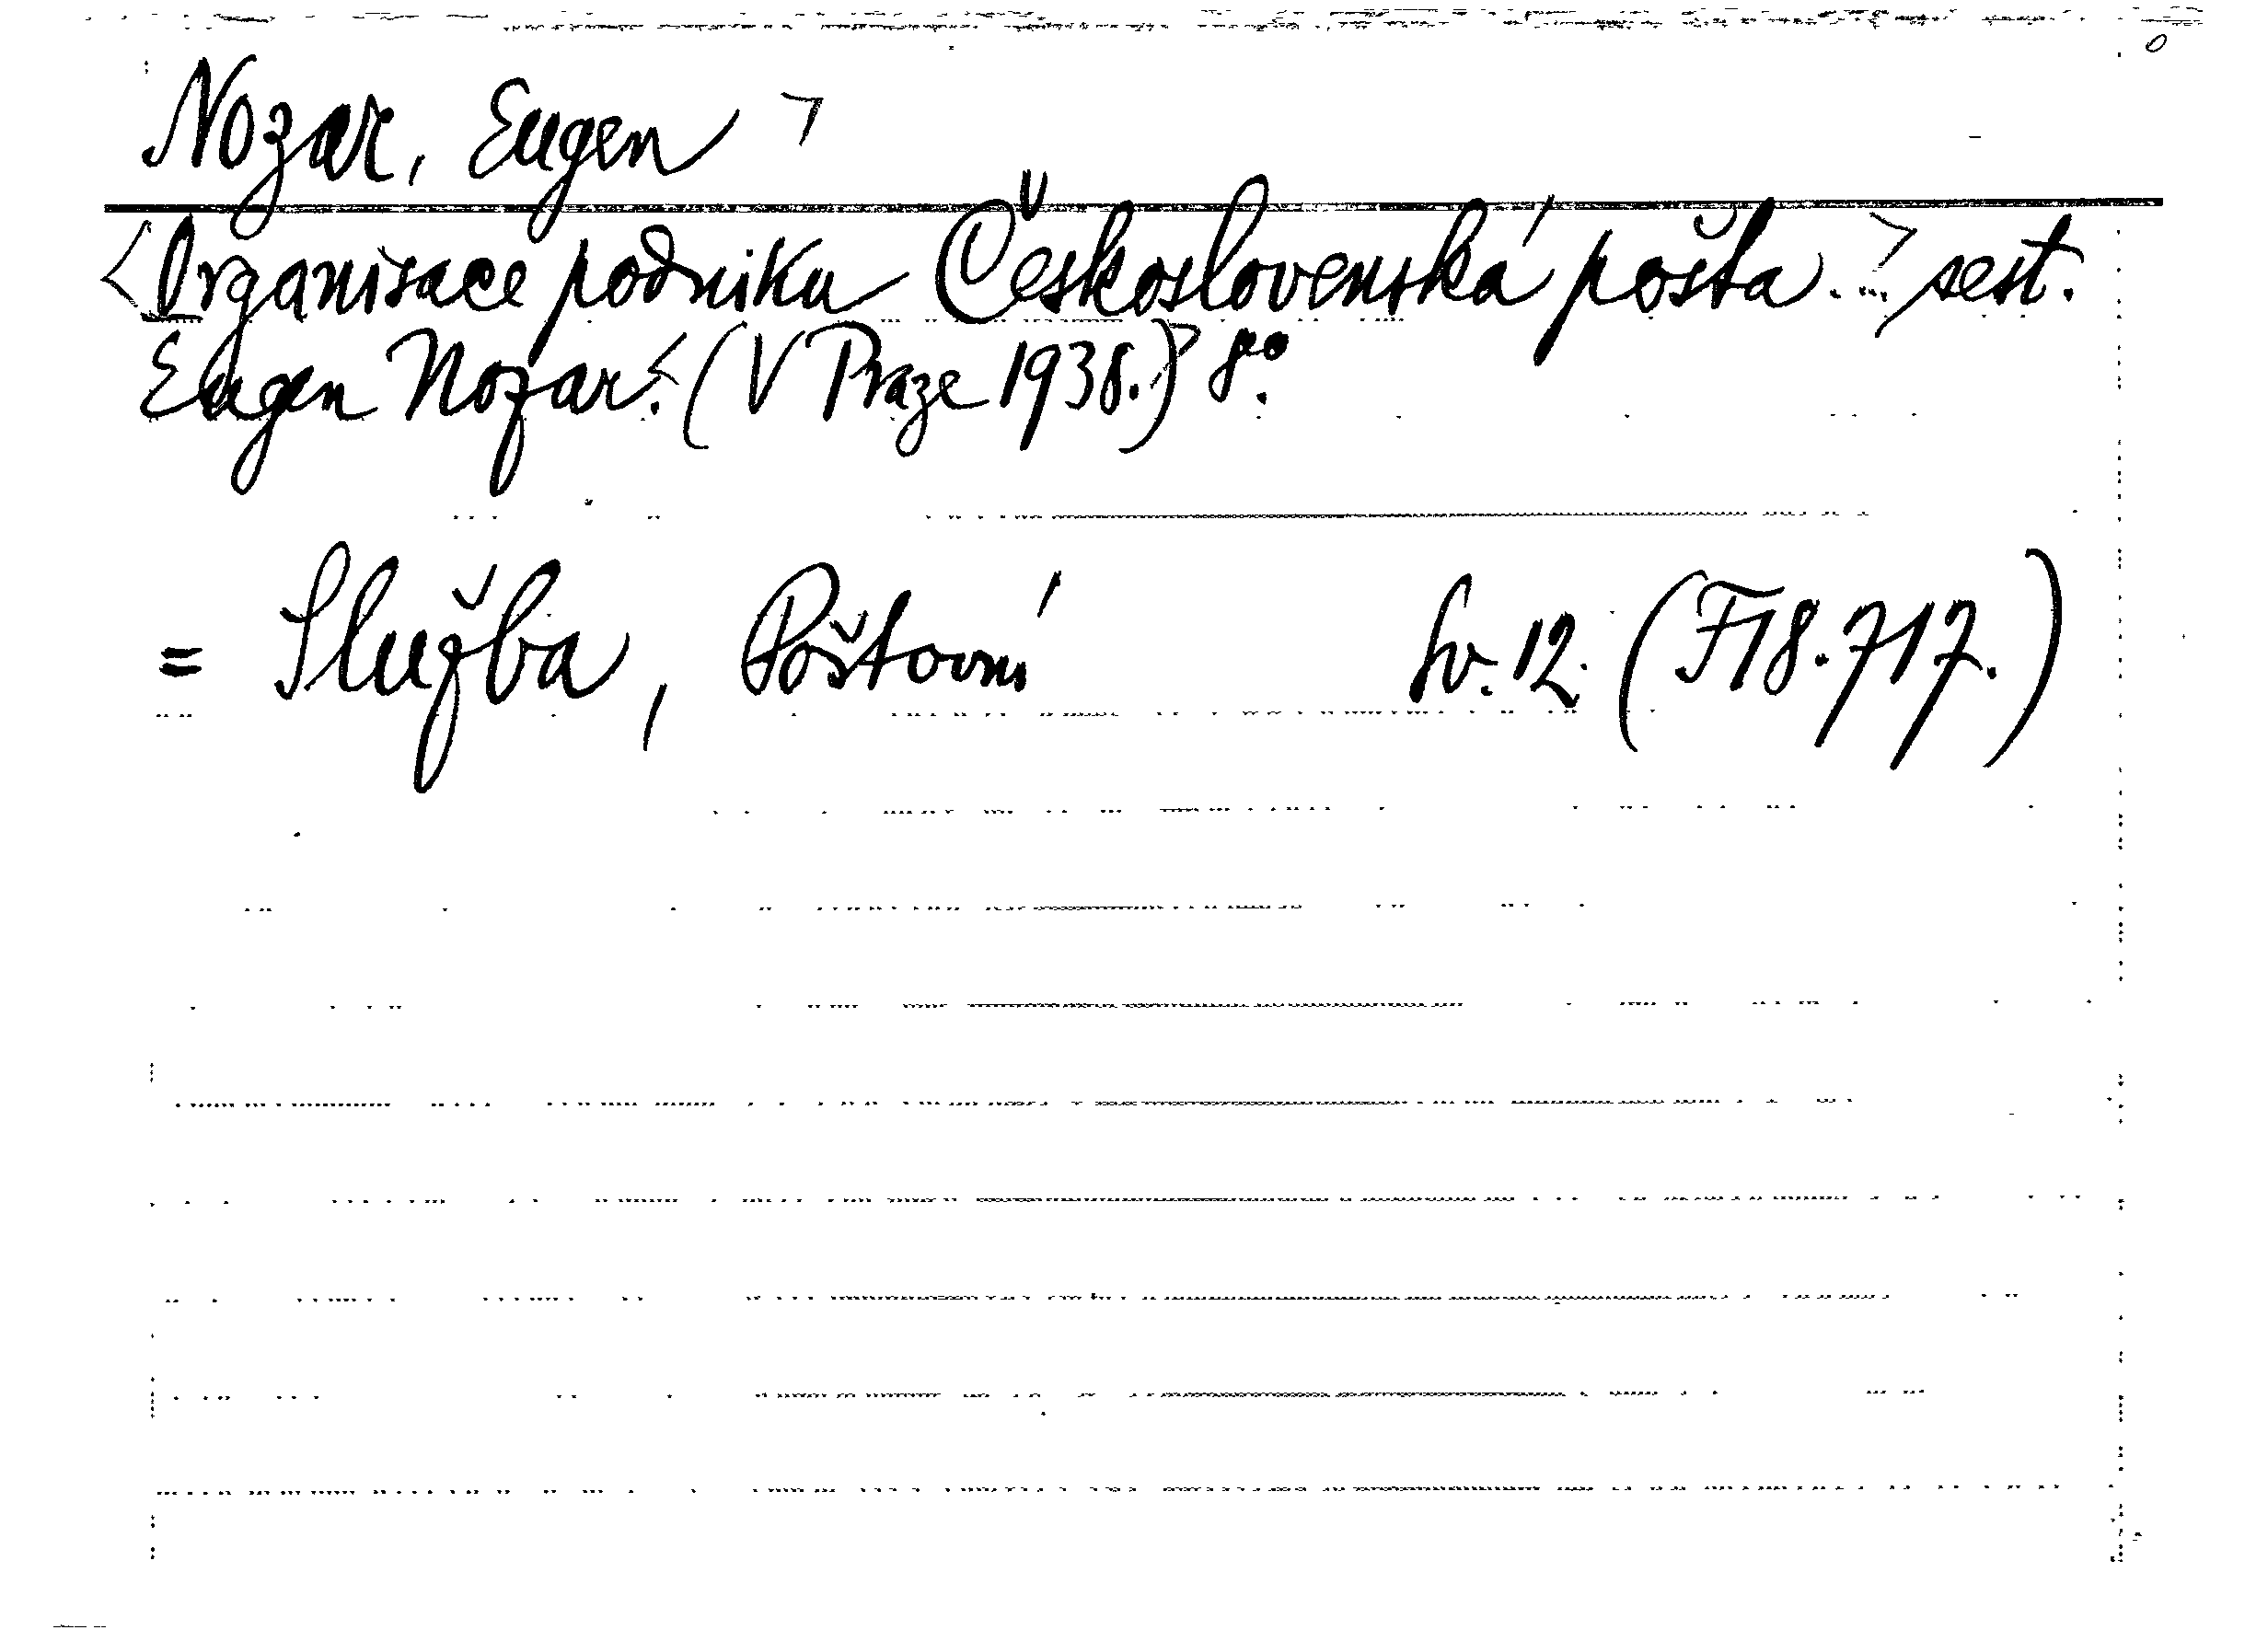 Nozar, Eugen >
<Organisace podniku Československá pošta...> sest.
Eugen Nozar. <(V Praze 1938.)> 8°.
= Služba, Poštovní Sv. 12. (F 18.717.)